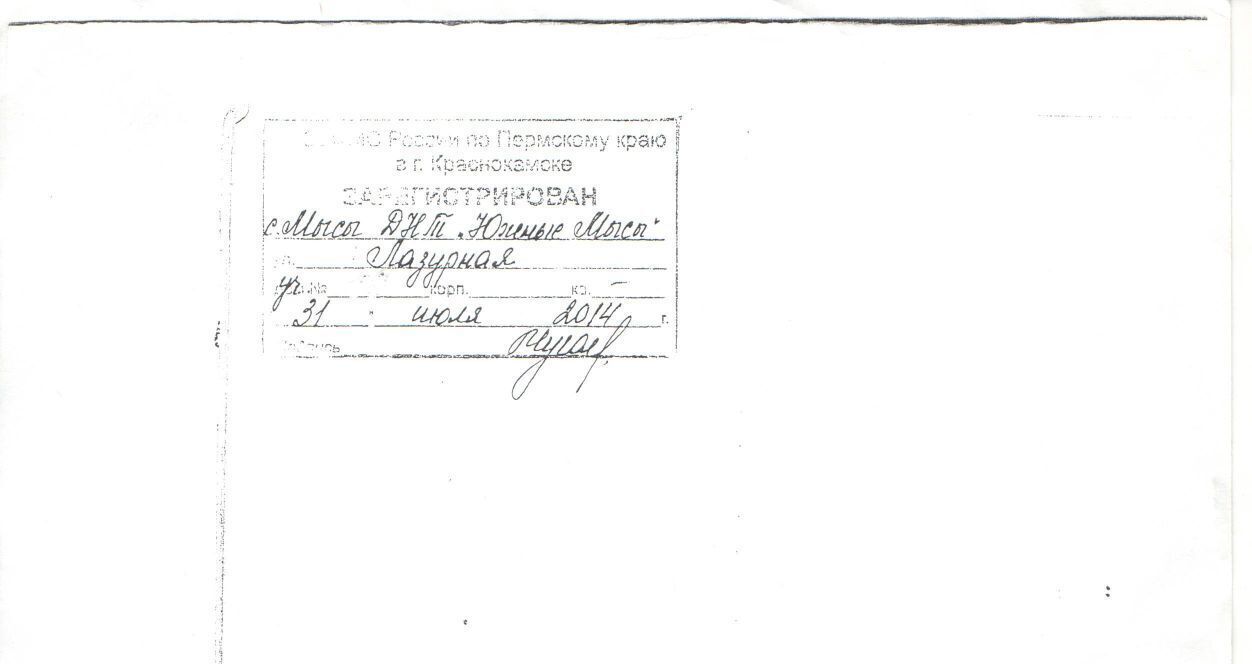 России по Пермскому краю
в г. Краснокамске
ЗАРЕГИСТРИРОВАН
с. Мысы ДНТ "Южные Мысы"
ул. Лазурная
уч. № корп. кв. –
31 июля 2014 г.
Подпись